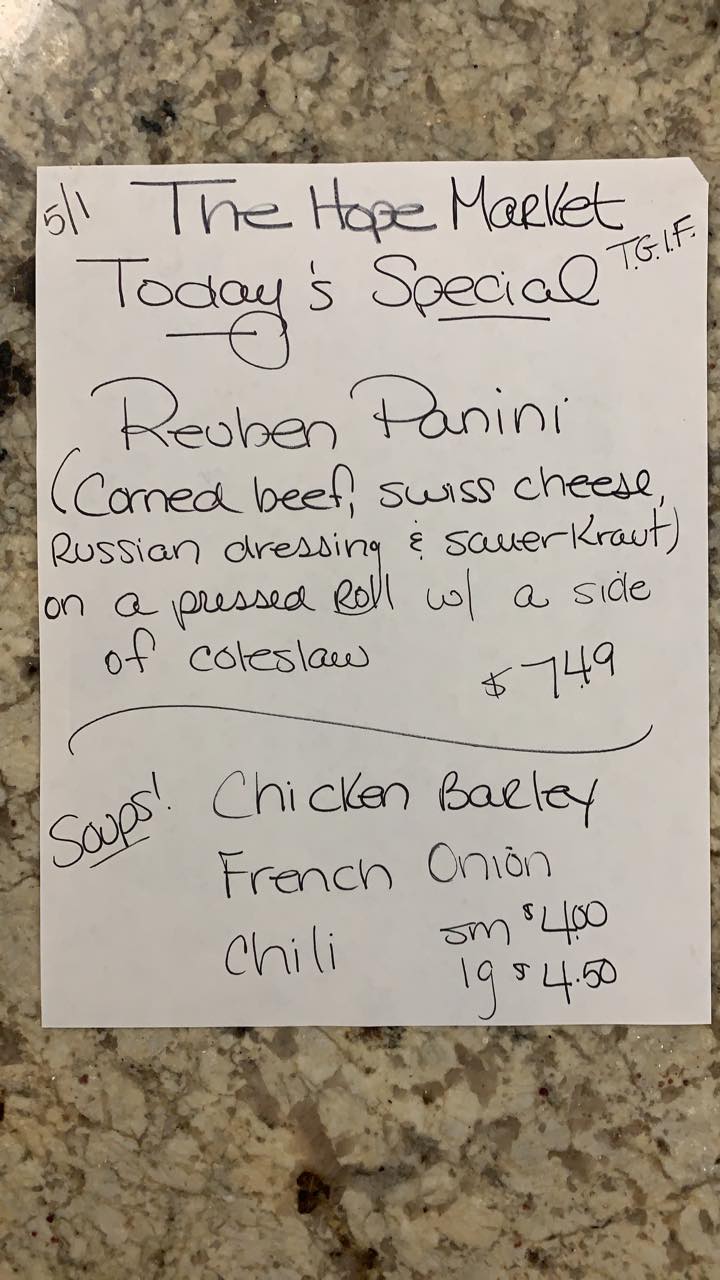 5/1 The Hope Market
Today's Special T.G.I.F.
Reuben Panini
(Corned beef, swiss cheese,
Russian dressing & sauerkraut)
on a pressed Roll w/ a side
of coleslaw
$7.49
Soups! Chicken Barley
French Onion
Chili sm $4.00
lg $4.50